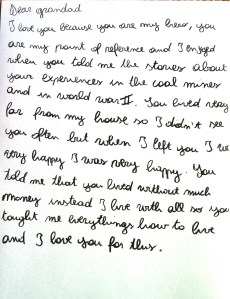 Dear grandad
I love you because you are my hero, you
are my point of reference and I enjoyed
when you told me the stories about
your experiences in the coal mines
and in world war II. You lived very
far from my house so I didn't see
you often but when I left you I w
very happy I was very happy. You
told me that you lived without much
money instead I live with all so you
tought me everythings how to live
and I love you for this.